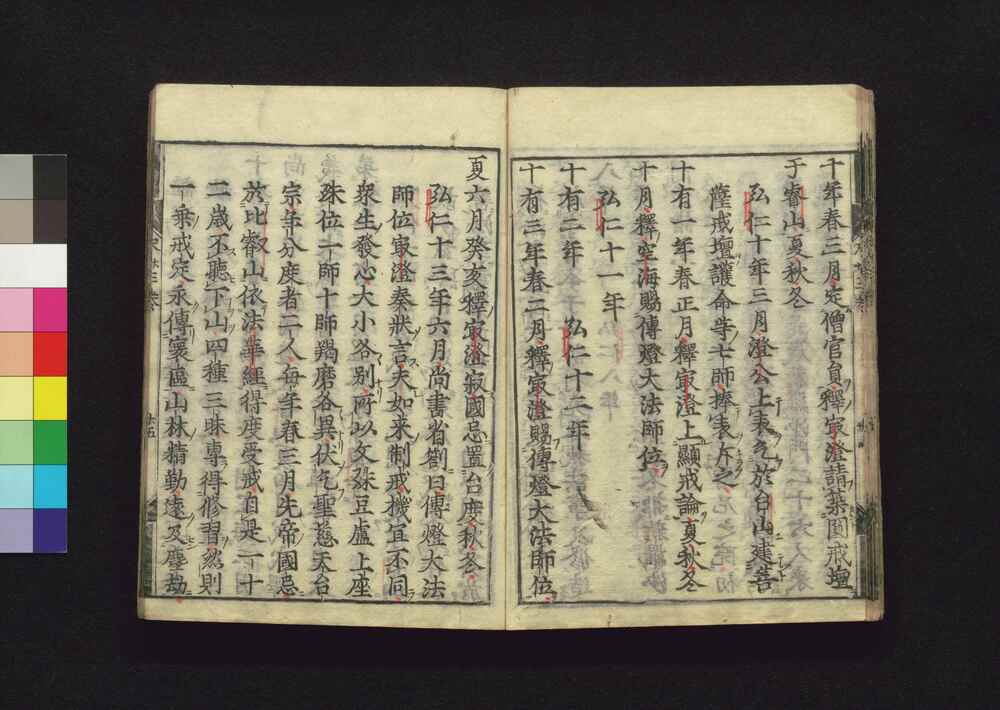 十年春三月定僧官員釋㝡澄請菓園戒壇
于睿山夏秋冬
弘仁十年三月澄公上表乞於台山建菩
薩戒壇護命等七師捧表斥之
十有一年春正月釋㝡澄上顯戒論夏秋冬
十月釋空海賜傳燈大法師位
弘仁十一年
十有二年　弘仁十二年
十有三年春二月釋㝡澄賜傳燈大法師位
夏六月癸亥釋㝡澄寂國忌置台度秋冬
弘仁十三年六月尚書省劄曰傳燈大法
師位㝡澄奏狀言夫如来制戒機宜不同
衆生發心大小各別所以文殊豆盧上座
殊位一師十師羯磨各異伏乞聖慈天台
宗年分度者二人每年春三月先帝國忌
於比叡山依法華經得度受戒自是一十
二歳不聽下山四種三昧專得修習然則
一乘戒定永傳寰區山林精勤遠及塵劫
十五